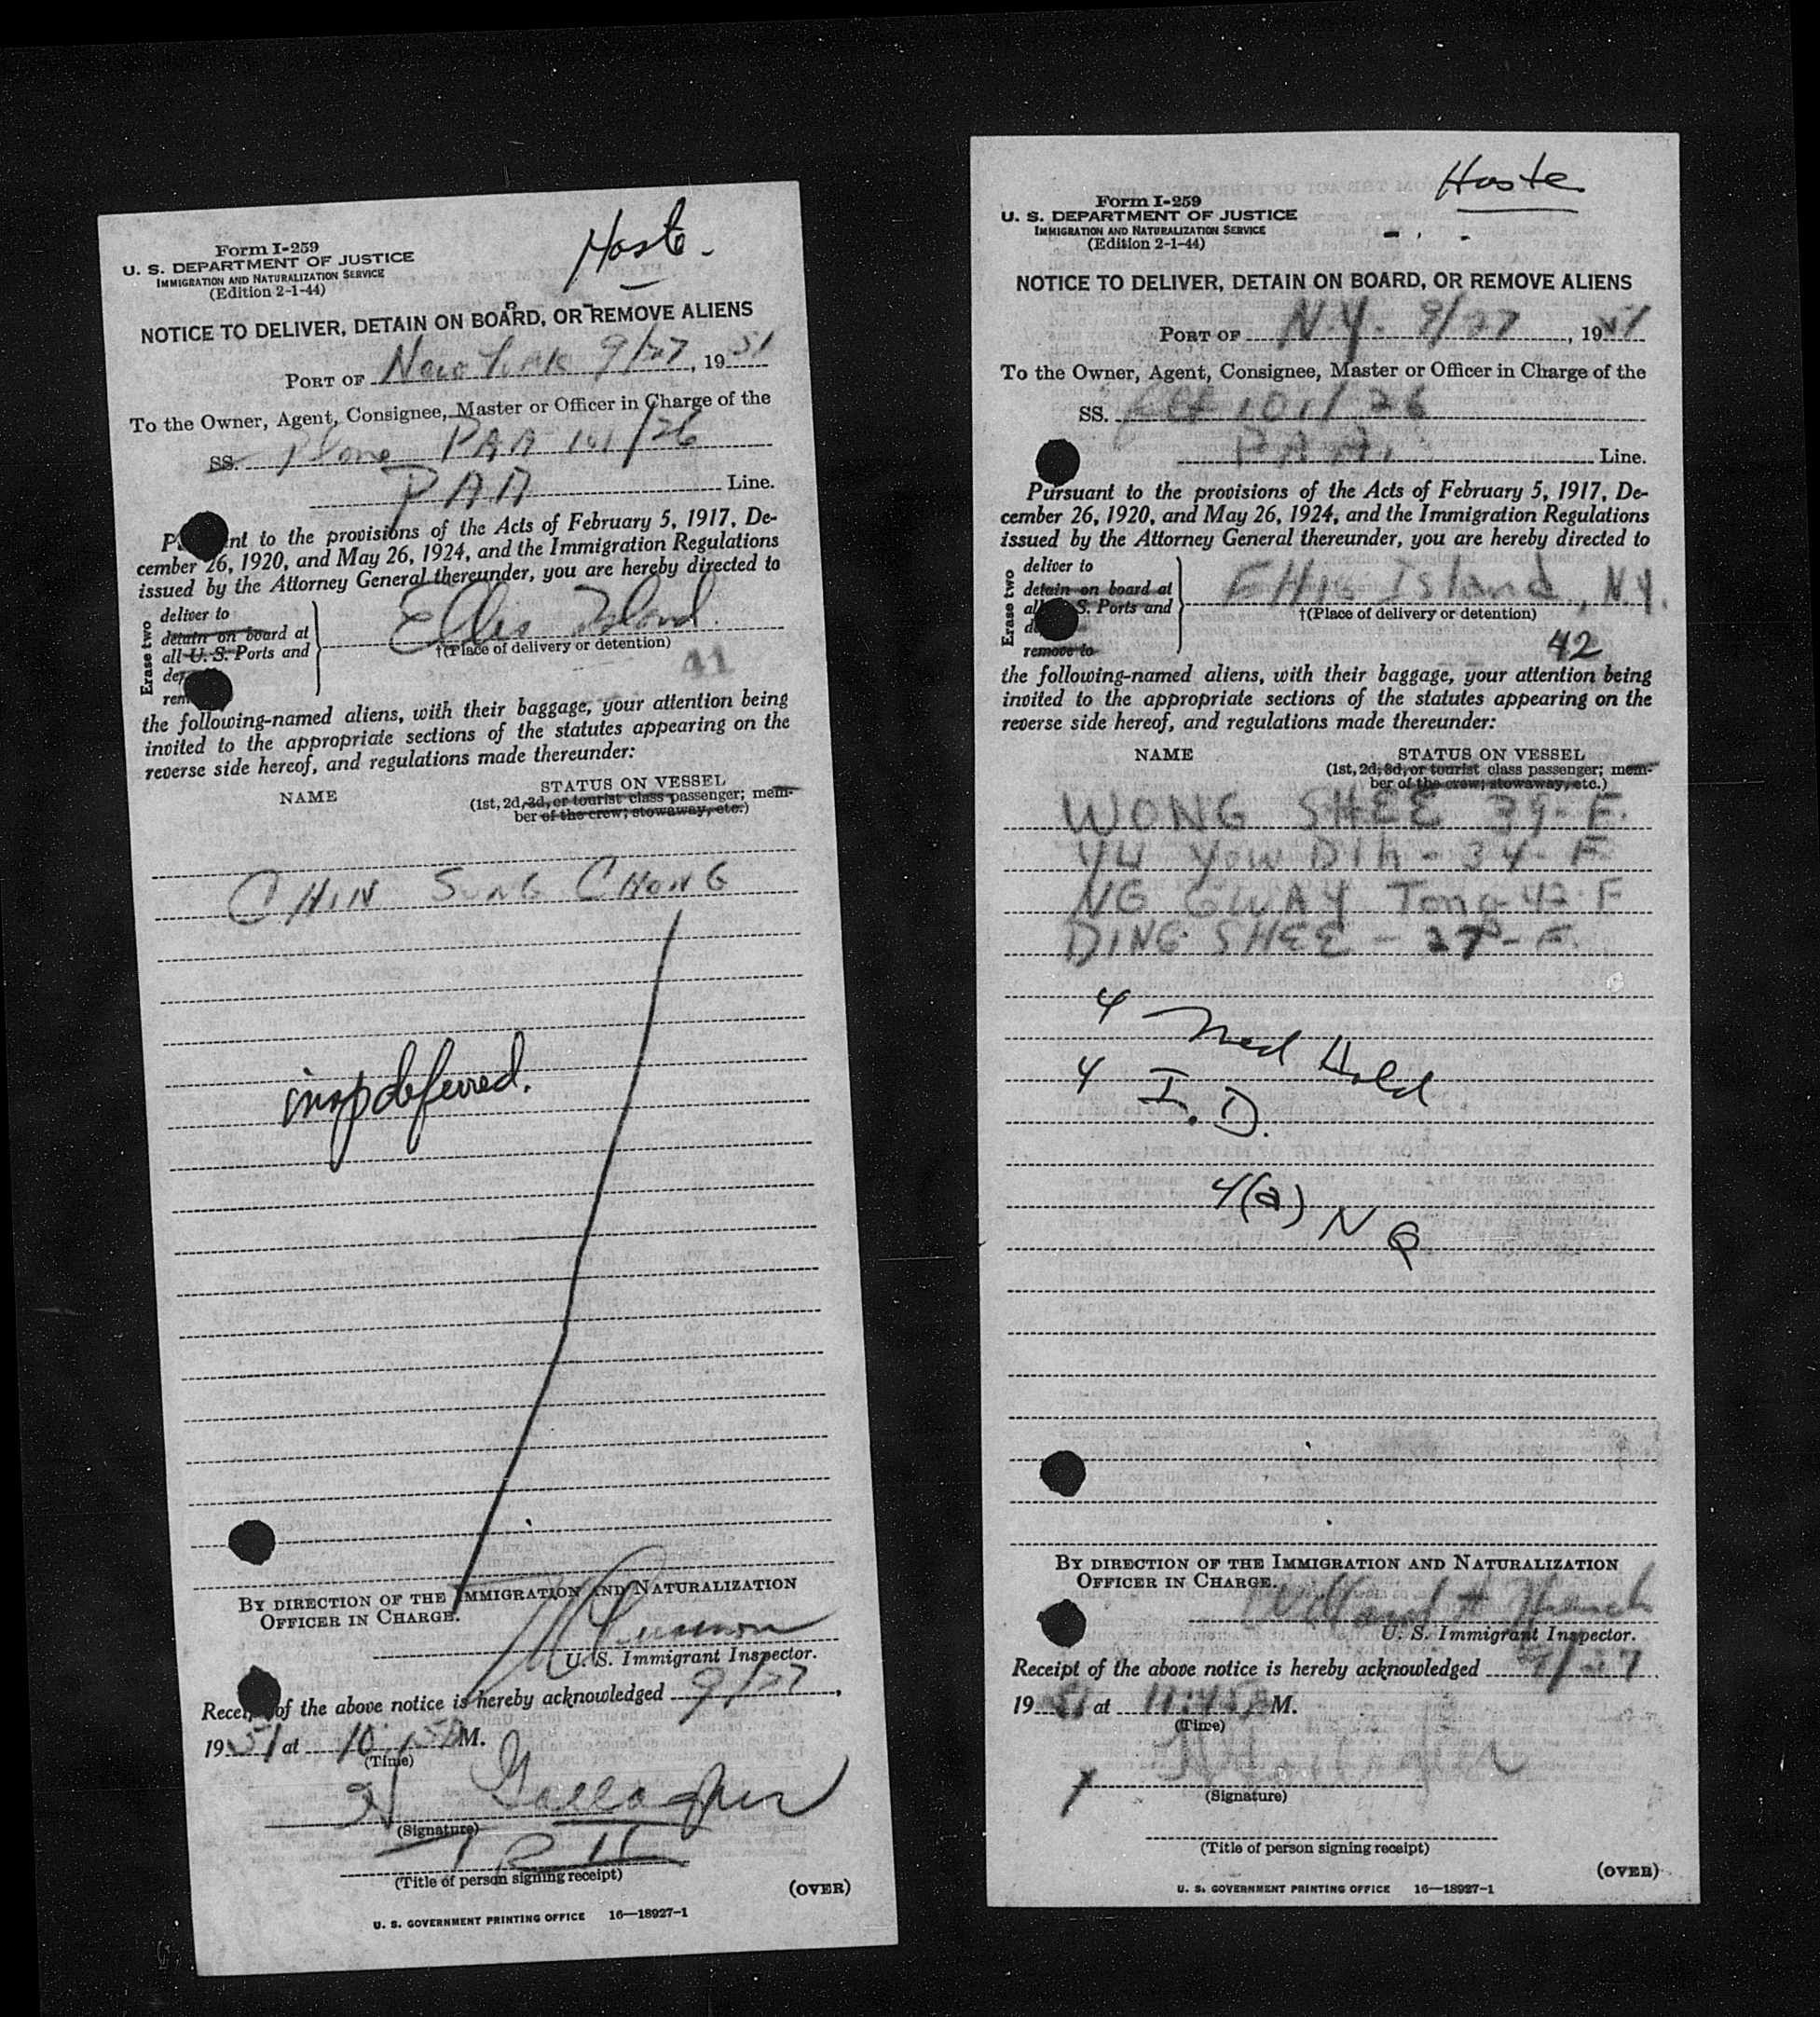 Form I-259
U. S. DEPARTMENT OF JUSTICE
IMMIGRATION AND NATURALIZATION SERVICE
(Edition 2-1-44)
NOTICE TO DELIVER, DETAIN ON BOARD, OR REMOVE ALIENS
PORT OF New York 9/27, 1951
To the Owner, Agent, Consignee, Master or Officer in Charge of the
SS. Plane PAA 101/26
PAA Line.
nt to the provisions of the Acts of February 5, 1917, De-
cember 26, 1920, and May 26, 1924, and the Immigration Regulations
issued by the Attorney General thereunder, you are hereby directed to
Erase two
deliver to
detain on board at
all U. S. Ports and
Ellis Island.
†(Place of delivery or detention)
41
the following-named aliens, with their baggage, your attention being
invited to the appropriate sections of the statutes appearing on the
reverse side hereof, and regulations made thereunder:
NAME
STATUS ON VESSEL
(1st, 2d, 3d, or tourist class passenger; mem-
ber of the crew; stowaway, etc.)
CHIN SUNG CHONG
insp deferred.
BY DIRECTION OF THE IMMIGRATION AND NATURALIZATION
OFFICER IN CHARGE.
U. S. Immigrant Inspector.
Receipt of the above notice is hereby acknowledged 9/27,
1951 at 10 M.
(Time)
Gallagher
(Signature)
(Title of person signing receipt)
(OVER)
U. S. GOVERNMENT PRINTING OFFICE 16—18927-1
Haste
Form I-259
U. S. DEPARTMENT OF JUSTICE
IMMIGRATION AND NATURALIZATION SERVICE
(Edition 2-1-44)
NOTICE TO DELIVER, DETAIN ON BOARD, OR REMOVE ALIENS
PORT OF N.Y. 9/27, 1951
To the Owner, Agent, Consignee, Master or Officer in Charge of the
SS. 101/26
PAA. Line.
Pursuant to the provisions of the Acts of February 5, 1917, De-
cember 26, 1920, and May 26, 1924, and the Immigration Regulations
issued by the Attorney General thereunder, you are hereby directed to
Erase two
deliver to
detain on board at
S. Ports and
remove to
Ellis Island, N.Y.
†(Place of delivery or detention)
42
the following-named aliens, with their baggage, your attention being
invited to the appropriate sections of the statutes appearing on the
reverse side hereof, and regulations made thereunder:
NAME
STATUS ON VESSEL
(1st, 2d, 3d, or tourist class passenger; mem-
ber of the crew; stowaway, etc.)
WONG SHEE 39-F.
YU YOW DIh - 34-F
NG GWAY Tong 42-F
DING SHEE - 27-F.
4 Med Hold
4 I.D.
4(a) NQ
BY DIRECTION OF THE IMMIGRATION AND NATURALIZATION
OFFICER IN CHARGE.
U. S. Immigrant Inspector.
Receipt of the above notice is hereby acknowledged 9/27
1951 at 11:45 AM.
(Time)
(Signature)
(Title of person signing receipt)
(OVER)
U. S. GOVERNMENT PRINTING OFFICE 16—18927-1